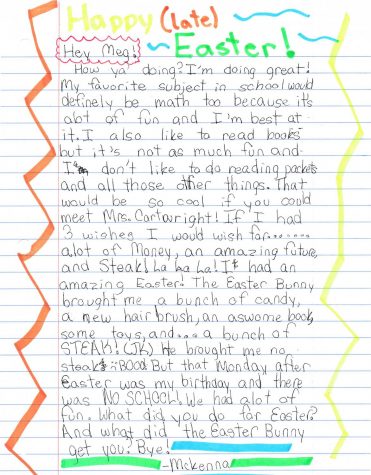 Happy (late)
Easter!
Hey Meg!
How ya' doing? I'm doing great!
My favorite subject in school would
definely be math too because it's
alot of fun and I'm best at
it. I also like to read books
but it's not as much fun and
I don't like to do reading packets
and all those other things. That
would be so cool if you could
meet Mrs. Cartwright! If I had
3 wishes I would wish for.......
alot of Money, an amazing future,
and Steak! La La La! I had an
amazing Easter! The Easter Bunny
brought me a bunch of candy,
a new hair brush, an aswome book,
some toys, and.... a bunch of
STEAK! (JK) He brought me no
steak :( BOO! But that Monday after
Easter was my birthday and there
was NO SCHOOL! We had alot of
fun. What did you do for Easter?
And what did the Easter Bunny
get you? Bye!
-Mckenna